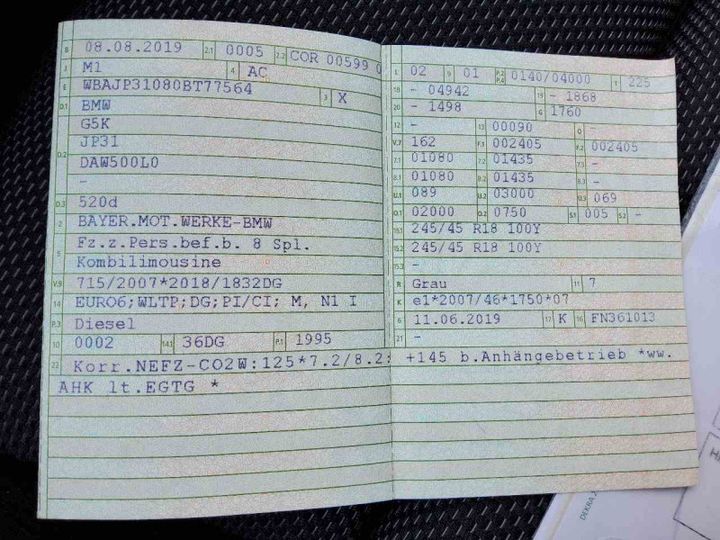 B 08.08.2019 2.1 0005 2.2 COR 00599 0
J M1 4 AC
E WBAJP31080BT77564 3 X
D.1 BMW
G5K
D.2 JP31
DAW500L0
-
D.3 520d
2 BAYER.MOT.WERKE-BMW
5 Fz.z.Pers.bef.b. 8 Spl.
Kombilimousine
V.9 715/2007*2018/1832DG
14 EURO6;WLTP;DG;PI/CI; M, N1 I
P.3 Diesel
10 0002 14.1 36DG P.1 1995
22 Korr.NEFZ-CO2W:125*7.2/8.2:
AHK lt.EGTG *
L 02 9 01 P.2 P.4 0140/04000 T 225
18 - 04942 19 - 1868
20 - 1498 G 1760
12 - 13 00090 Q -
V.7 162 F.1 002405 F.2 002405
7.1 01080 7.2 01435 7.3 -
8.1 01080 8.2 01435 8.3 -
U.1 089 U.2 03000 U.3 069
O.1 02000 O.2 0750 S.1 005 S.2 -
15.1 245/45 R18 100Y
15.2 245/45 R18 100Y
15.3 -
R Grau 11 7
K e1*2007/46*1750*07
6 11.06.2019 17 K 16 FN361013
21 -
+145 b.Anhängebetrieb *ww.
DEKRA